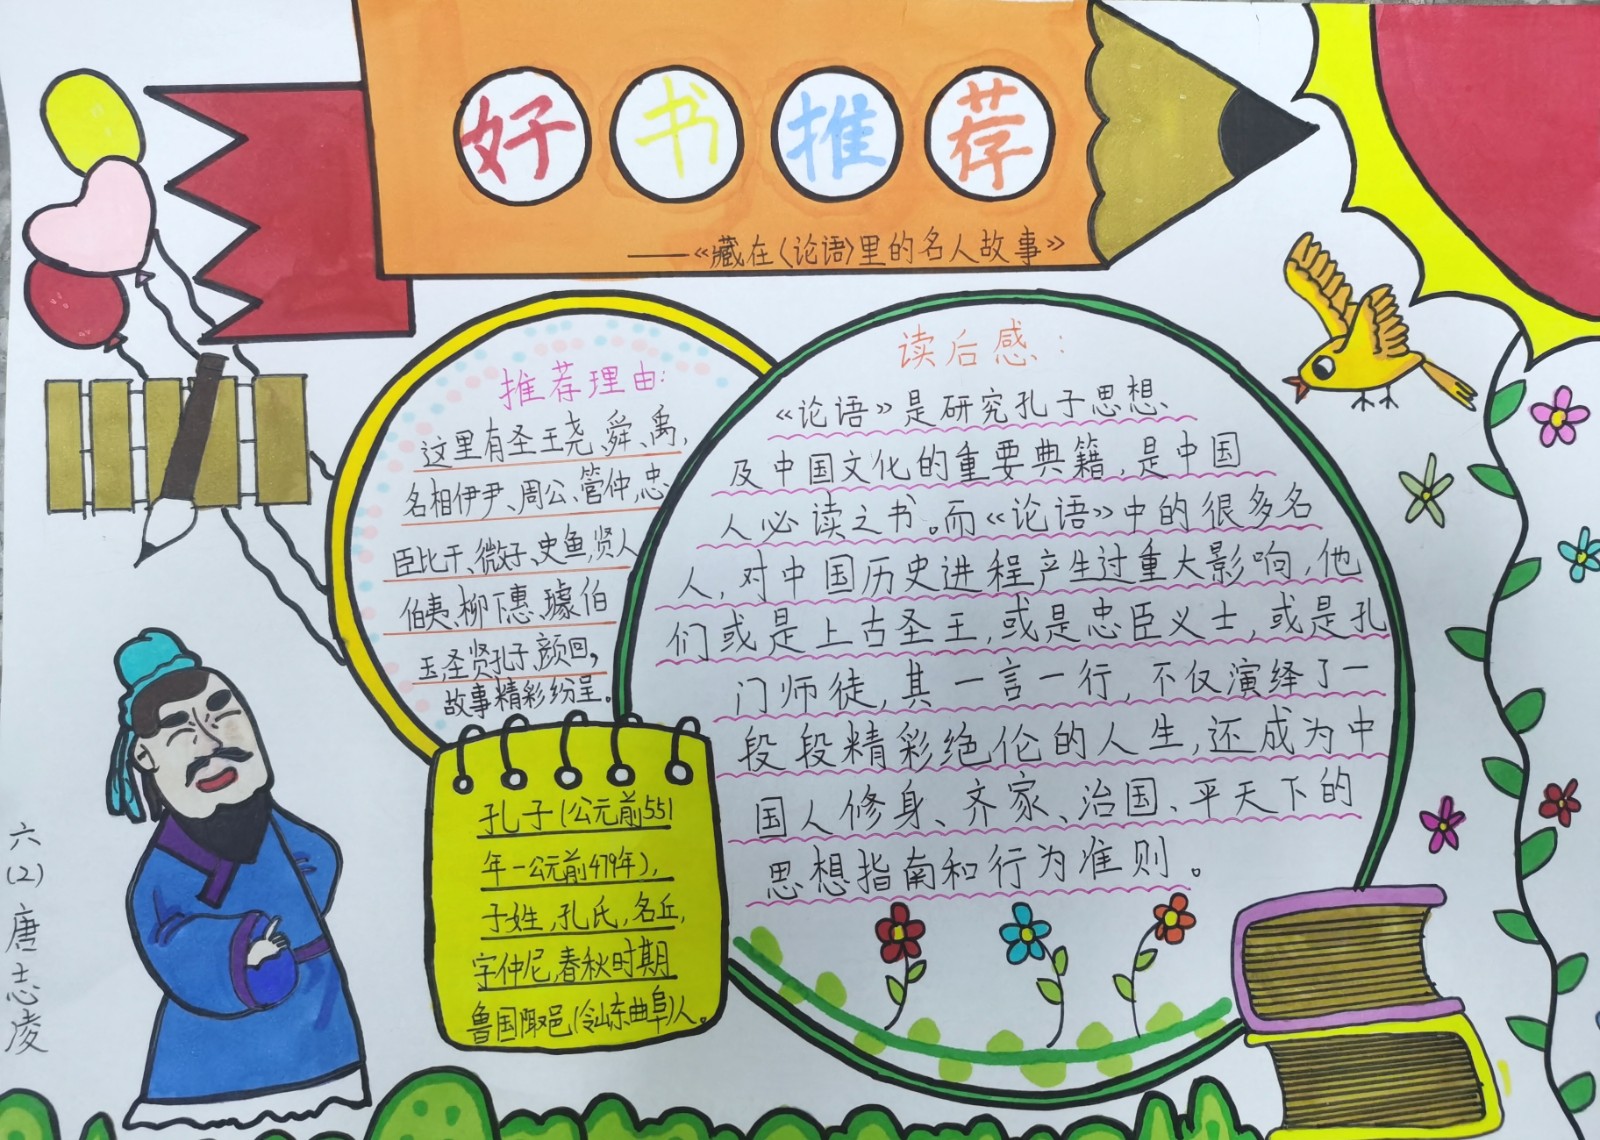 好书推荐
——《藏在〈论语〉里的名人故事》
推荐理由:
这里有圣王尧、舜、禹,
名相伊尹、周公、管仲,忠
臣比干、微子、史鱼,贤人
伯夷、柳下惠、璩伯
玉,圣贤孔子、颜回,
故事精彩纷呈。
读后感:
《论语》是研究孔子思想
及中国文化的重要典籍,是中国
人必读之书。而《论语》中的很多名
人,对中国历史进程产生过重大影响,他
们或是上古圣王,或是忠臣义士,或是孔
门师徒,其一言一行,不仅演绎了一
段段精彩绝伦的人生,还成为中
国人修身、齐家、治国、平天下的
思想指南和行为准则。
孔子(公元前551
年—公元前479年),
子姓,孔氏,名丘,
字仲尼,春秋时期
鲁国陬邑(今山东曲阜)人。
六(2)唐志凌